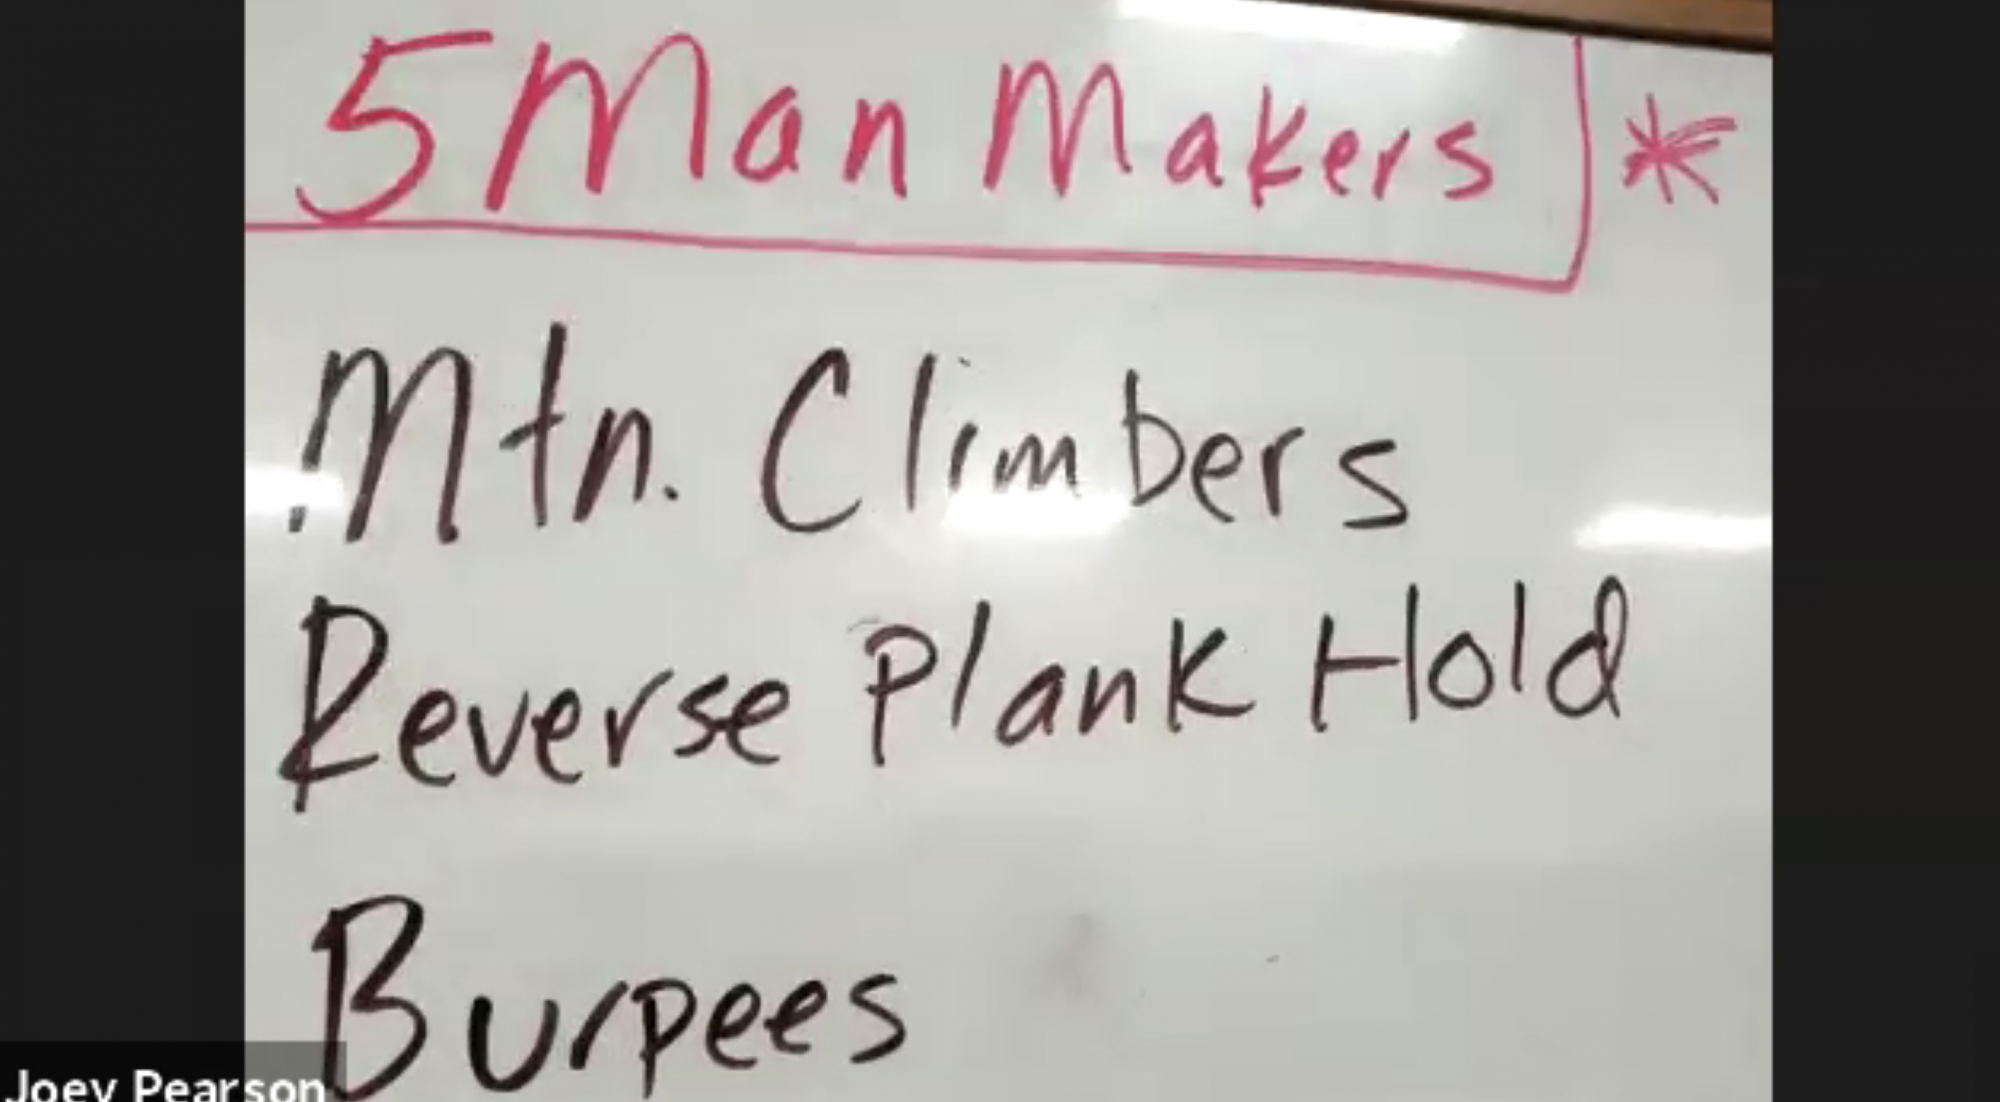 5 Man Makers *
Mtn. Climbers
Reverse Plank Hold
Burpees
Joey Pearson